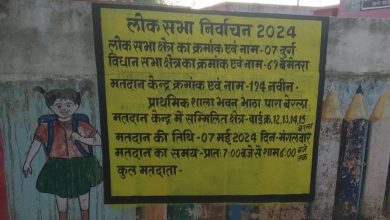 लोक सभा निर्वाचन 2024
लोक सभा क्षेत्र का क्रमांक एवं नाम-07 दुर्ग
विधान सभा क्षेत्र का क्रमांक एवं नाम-69 बेमेतरा
मतदान केन्द्र क्रमांक एवं नाम-194 नवीन
प्राथमिक शाला भवन भाठा पारा बेरला
मतदान केन्द्र में सम्मिलित क्षेत्र-वार्ड क्र. 12,13,14,15
बेरला
मतदान की तिथि-07 मई 2024 दिन-मंगलवार
मतदान का समय-प्रातः 7:00 बजे से शाम 6:00 बजे तक
कुल मतदाता-